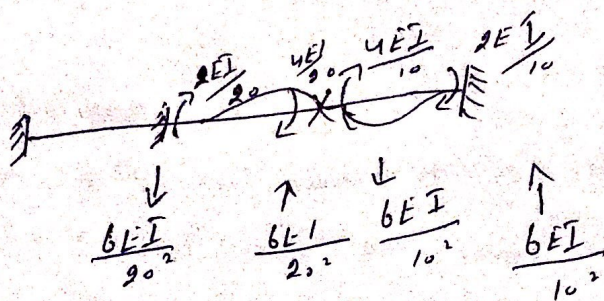 2EI/20 4EI/20 4EI/10 2EI/10
6EI/20² 6EI/20² 6EI/10² 6EI/10²